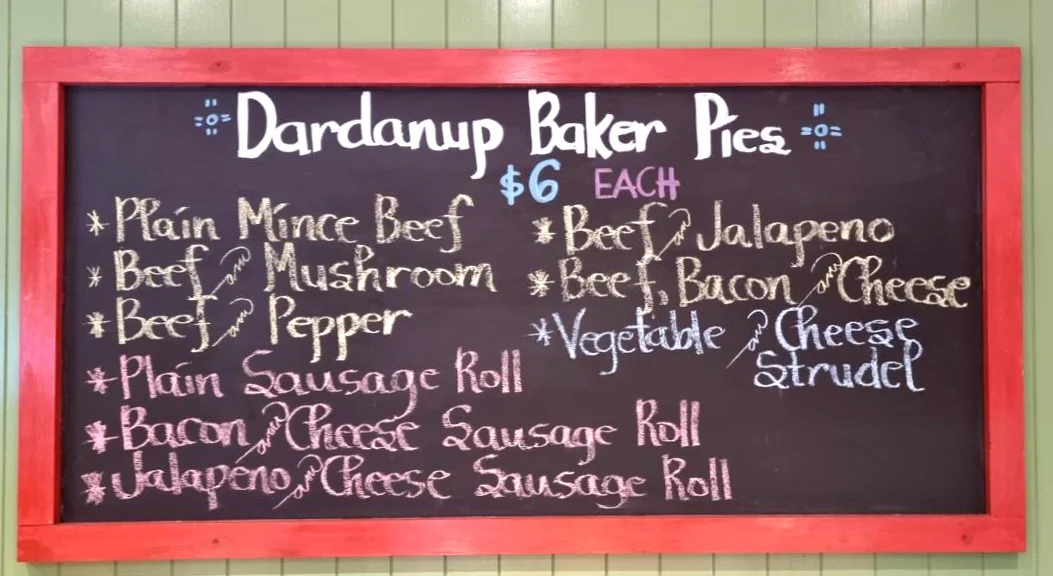 Dardanup Baker Pies
$6 EACH
* Plain Mince Beef
* Beef and Mushroom
* Beef and Pepper
* Beef and Jalapeno
* Beef, Bacon and Cheese
* Vegetable and Cheese
Strudel
* Plain Sausage Roll
* Bacon and Cheese Sausage Roll
* Jalapeno and Cheese Sausage Roll